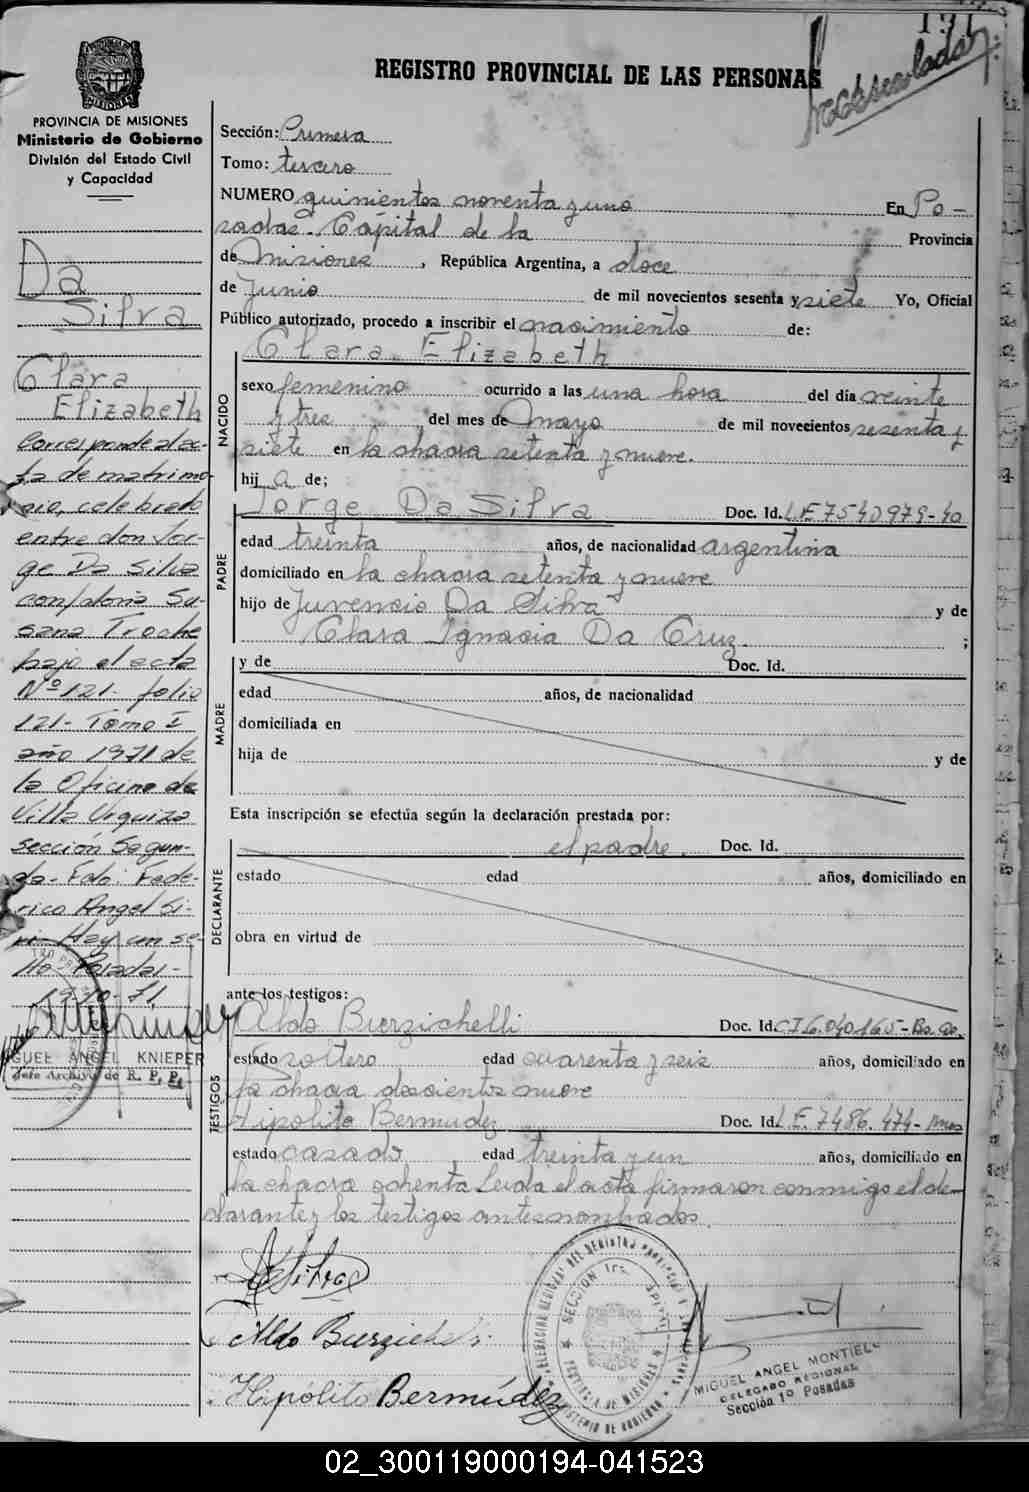 REGISTRO PROVINCIAL DE LAS PERSONAS
PROVINCIA DE MISIONES
Ministerio de Gobierno
División del Estado Civil
y Capacidad
Sección: Primera
Tomo: tercero
NUMERO quinientos noventa y uno En Po-
sadas. Capital de la Provincia
de Misiones, República Argentina, a doce
de Junio de mil novecientos sesenta y siete Yo, Oficial
Público autorizado, procedo a inscribir el nacimiento de:
Clara Elizabeth
NACIDO
sexo femenino ocurrido a las una hora del día veinte
y tres del mes de Mayo de mil novecientos sesenta y
siete en la chacra setenta y nueve.
hija de;
Jorge Da Silva Doc. Id. L.E 7540979-40
PADRE
edad treinta años, de nacionalidad argentina
domiciliado en la chacra setenta y nueve
hijo de Juvencio Da Silva y de
Clara Ignacia Da Cruz. ;
MADRE
y de Doc. Id.
edad años, de nacionalidad
domiciliada en
hija de y de
Esta inscripción se efectúa según la declaración prestada por:
el padre. Doc. Id.
DECLARANTE
estado edad años, domiciliado en
obra en virtud de
ante los testigos:
TESTIGOS
Aldo Burzichelli Doc. Id. C I 6.040165-Bs As.
estado soltero edad cuarenta y seis años, domiciliado en
la chacra doscientos nueve
Hipolito Bermudez Doc. Id. L.E. 7486.474-mnes
estado casado edad treinta y un años, domiciliado en
la chacra ochenta Leida el acta firmaron conmigo el de-
clarante y los testigos antes nombrados.
Da Silva
Clara
Elizabeth
Corresponde al ac-
ta de matrimo-
nio, celebrado
entre don Jor-
ge Da Silva
con doña Su-
sana Troche
bajo el acta
Nº 121- folio
121- Tomo I
año 1971 de
la Oficina de
Villa Urquiza
sección Segun-
da- Fdo: Fede-
rico Angel Si-
ri- Hay un se-
llo- Posadas-
19-10-71
MIGUEL ANGEL KNIEPER
Jefe Archivo de R. P. P.
Aldo Burzichelli
Hipólito Bermúdez
MIGUEL ANGEL MONTIEL
DELEGADO REGIONAL
Sección 1º Posadas
02_300119000194-041523